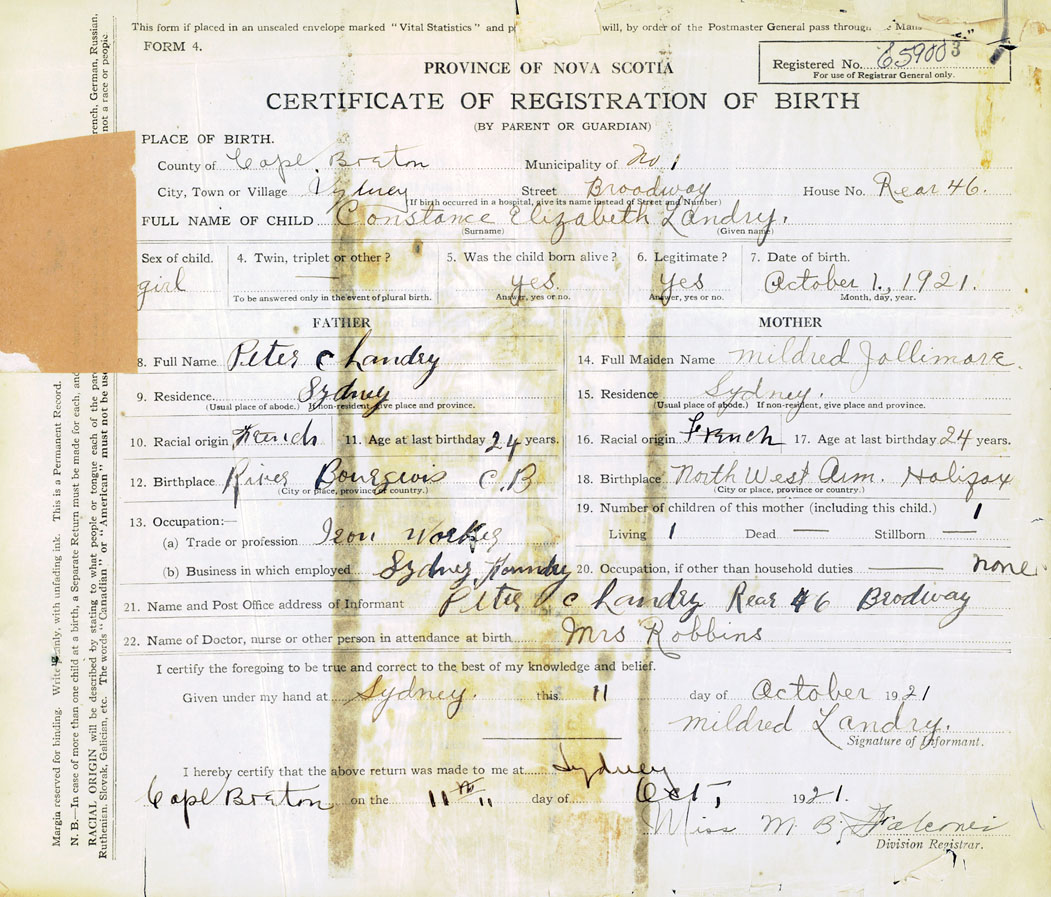 This form if placed in an unsealed envelope marked "Vital Statistics" and p will, by order of the Postmaster General pass through Mail
FORM 4.
Registered No. 65900 3
For use of Registrar General only.
PROVINCE OF NOVA SCOTIA
CERTIFICATE OF REGISTRATION OF BIRTH
(BY PARENT OR GUARDIAN)
PLACE OF BIRTH.
County of Cape Breton Municipality of No. 1
City, Town or Village Sydney Street Broodway House No. Rear 46.
(If birth occurred in a hospital, give its name instead of Street and Number)
FULL NAME OF CHILD Constance Elizabeth Landry.
(Surname) (Given name)
Sex of child. 4. Twin, triplet or other? 5. Was the child born alive? 6. Legitimate? 7. Date of birth.
girl — yes. yes October 1., 1921.
To be answered only in the event of plural birth. Answer, yes or no. Answer, yes or no. Month, day, year.
FATHER MOTHER
8. Full Name Peter C Landry 14. Full Maiden Name Mildred Jollimore.
9. Residence Sydney 15. Residence Sydney.
(Usual place of abode.) If non-resident, give place and province. (Usual place of abode.) If non-resident, give place and province.
10. Racial origin French 11. Age at last birthday 24 years. 16. Racial origin French 17. Age at last birthday 24 years.
12. Birthplace River Bourgeois C.B 18. Birthplace North West Arm. Halifax
(City or place, province or country.) (City or place, province or country.)
13. Occupation:— 19. Number of children of this mother (including this child.) 1
(a) Trade or profession Iron Worker Living 1 Dead — Stillborn —
(b) Business in which employed Sydney 20. Occupation, if other than household duties — none
21. Name and Post Office address of Informant Peter C Landry Rear 46 Brodway
22. Name of Doctor, nurse or other person in attendance at birth Mrs Robbins
I certify the foregoing to be true and correct to the best of my knowledge and belief.
Given under my hand at Sydney. this 11 day of October 1921
Mildred Landry.
Signature of Informant.
I hereby certify that the above return was made to me at Sydney
Cape Breton on the 11th 11 day of Oct, 1921.
Miss M B Falconer
Division Registrar.
Margin reserved for binding. Write plainly, with unfading ink. This is a Permanent Record.
N. B.—In case of more than one child at a birth, a Separate Return must be made for each, and
RACIAL ORIGIN will be described by stating to what people or tongue each of the pare rench, German, Russian,
Ruthenian, Slovak, Galician, etc. The words "Canadian" or "American" must not be use not a race or people.